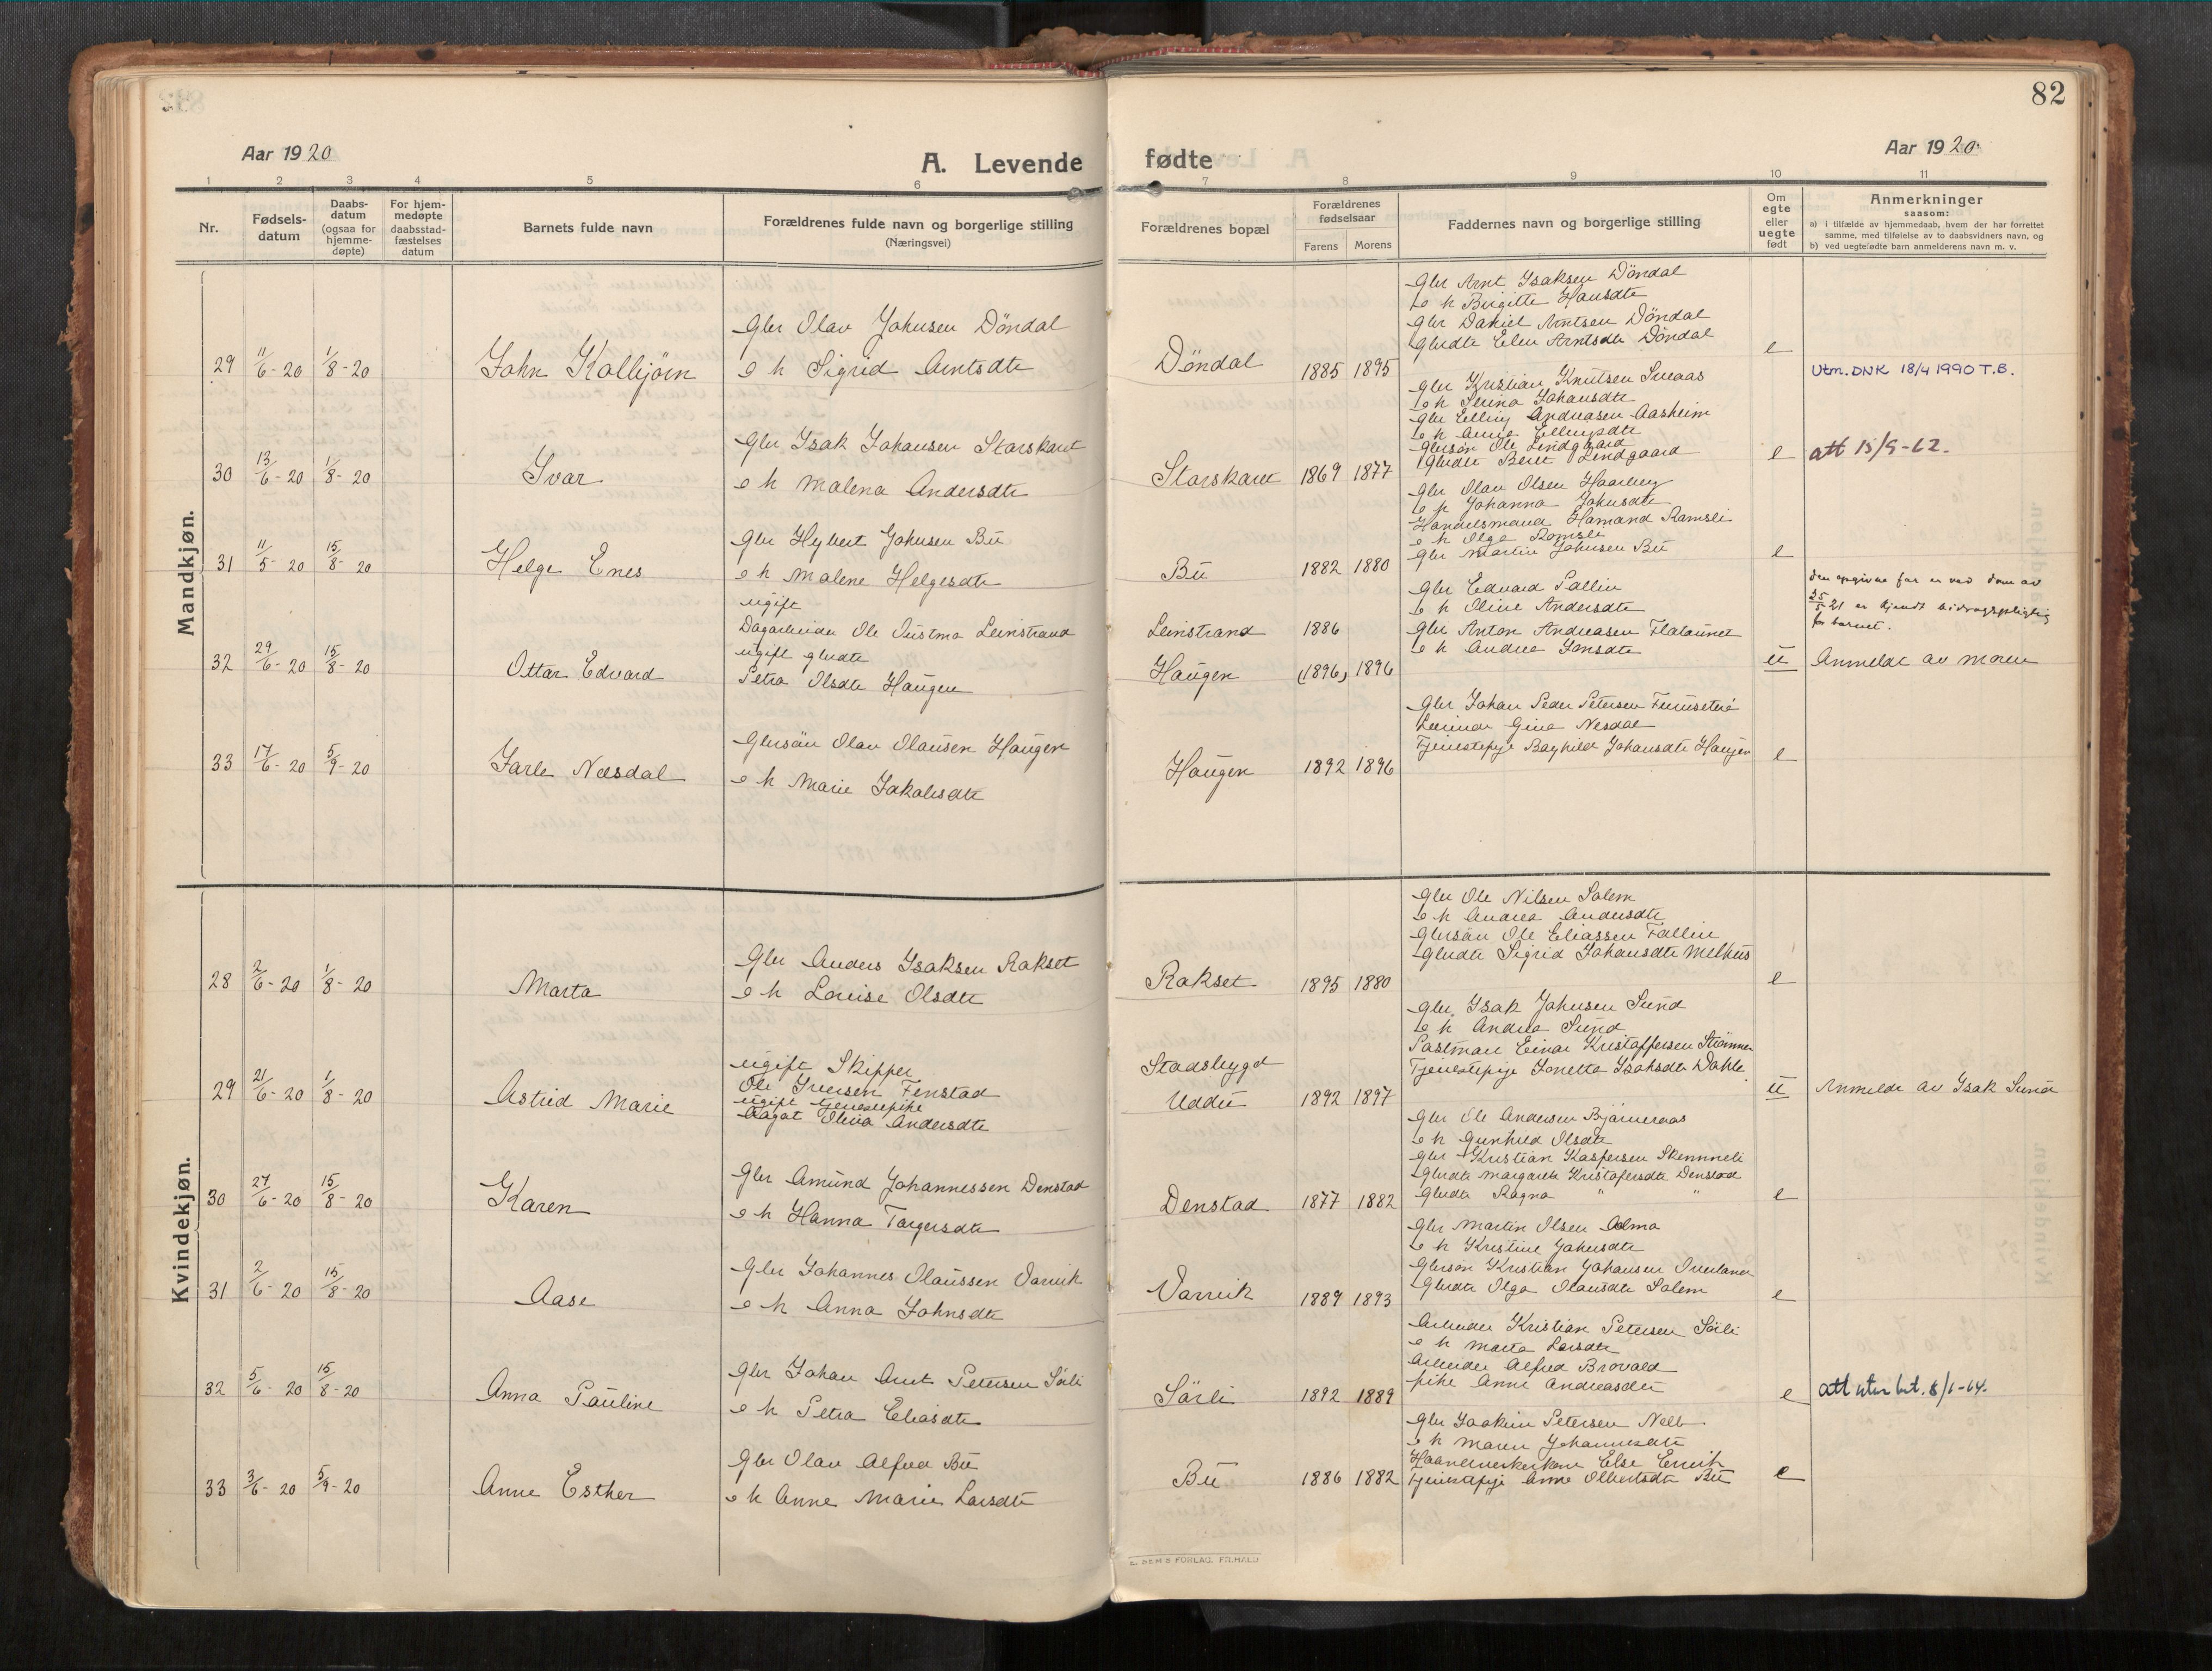 82
Aar 1920
A. Levende
fødte
Aar 1920
1 2 3 4 5 6 7 8 9 10 11
Nr.
Fødsels-
datum
Daabs-
datum
(ogsaa for
hjemme-
døpte)
For hjem-
medøpte
daabsstad-
fæstelses
datum
Barnets fulde navn
Forældrenes fulde navn og borgerlige stilling
(Næringsvei)
Forældrenes bopæl
Forældrenes
fødselsaar
Farens
Morens
Faddernes navn og borgerlige stilling
Om
egte
eller
uegte
født
Anmerkninger
saasom:
a) i tilfælde av hjemmedaab, hvem der har forrettet
samme, med tilføielse av to daabsvidners navn, og
b) ved uegtefødte barn anmelderens navn m. v.
Mandkjøn.
29 11/6-20 1/8-20 John Kolbjörn
Gbr Olav Johnsen Döndal
e h Sigrid Arntsdtr
Döndal 1885 1895
Gbr Arnt Isaksen Döndal
e h Birgitte Hansdtr
Gbr Daniel Arntsen Döndal
Gbrdtr Elen Arntsdtr Döndal
e
Utm. DNK 18/4 1990 T.B.
30 13/6-20 1/8-20 Ivar
Gbr Isak Johansen Storskaret
e h Malena Andersdtr
Storskaret 1869 1877
Gbr Kristian Knutsen Sneaas
e h Serina Johansdtr
Gbr Elling Andreasen Aasheim
e h Anne Ellingsdtr
Gbrsön Ole Lindgaard
Gbrdtr Beret Lindgaard
e
att 15/9-62.
31 11/5-20 15/8-20 Helge Enes
Gbr Hybert Johnsen Bü
e h Malene Helgesdtr
Bü 1882 1880
Gbr Olav Olsen Haarberg
e h Johanna Johnsdtr
Handelsmand Hamand Ramsli
e h Olga Romsli
Gbr Martin Johnsen Bü
e
32 29/6-20 15/8-20 Ottar Edvard
ugift
Dagarbeider Ole Leinstrand
ugift gbrdtr
Petra Olsdtr Haugen
Leinstrand 1886
Haugen (1896) 1896
Gbr Edvard Sallin
e h Oline Andersdtr
Gbr Anton Andreasen Flataunet
e h Andrea Jonsdtr
u
den opgivne far er ved dom av
25/5 21 er kjendt bidragspligtig
for barnet.
Anmeldt av moren
33 17/6-20 5/9-20 Jarle Næsdal
Gbrsön Olav Olausen Haugen
e h Marie Jakobsdtr
Haugen 1892 1896
Gbr Johan Peder Petersen
Gina Nesdal
Tjenestepige Raghild Johansdtr Haugen
e
Kvindekjøn.
28 2/6-20 1/8-20 Marta
Gbr Anders Isaksen Rakset
e h Louise Olsdtr
Rakset 1895 1880
Gbr Ole Nilsen Solem
e h Andrea Andersdtr
Gbrsön Ole Eliassen Fallin
Gbrdtr Sigrid Johansdtr Melhus
e
29 21/6-20 1/8-20 Astrid Marie
ugift Skipper
Ole Iversen Fenstad
ugift tjenestepike
Aagot Olivia Andersdtr
Stadsbygd
Uddu 1892 1897
Gbr. Isak Johnsen Sund
e h Andrea Sund
Postmand Einar Kristoffersen Strömmen
Tjenestepige Jonetta Isaksdtr Dahle
u
Anmeldt av Isak Sund
30 27/6-20 15/8-20 Karen
Gbr Amund Johannessen Denstad
e h Hanna Torgersdtr
Denstad 1877 1882
Gbr Ole Andersen Bjørneraas
e h Gunhild Olsdtr
Gbr Kristian Kaspersen
Gbrdtr Margarete Kristofersdtr Denstad
Gbrdtr Ragna " "
e
31 2/6-20 15/8-20 Aase
Gbr Johannes Olaussen Vannvik
e h Anna Johnsdtr
Vannvik 1889 1893
Gbr Martin Olsen Aalmo
e h Kristine Johnsdtr
Gbrsön Kristian Johansen Överland
Gbrdtr Olga Olausdtr Solem
e
32 5/6-20 15/8-20 Anna Pauline
Gbr Johan Arnt Petersen Sörli
e h Petra Eliasdtr
Sörli 1892 1889
Arbeider Kristian Petersen Sörli
e h Marta Larsdtr
Arbeider Alfred Brovold
pike Anne Andreasdtr
e
att uten bet. 8/1-64.
33 3/6-20 5/9-20 Anne Esther
Gbr Olav Alfred Bü
e h Anne Marie Larsdtr
Bü 1886 1882
Gbr Joakim Petersen
e h Maren Johannesdtr
Else
Tjenestepige Anne Olbertsdtr Bü
e